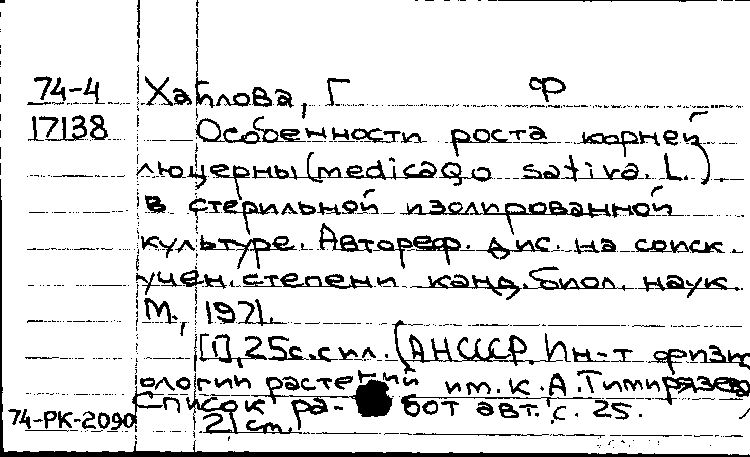 74-4 Хаплова, Г Ф
17138 Особенности роста корней
люцерны (medicago sativa. L.).
в стерильной изолированной
культуре. Автореф. дис. на соиск.
учен. степени канд. биол. наук.
М., 1971.
[1], 25с. с ил. (АНСССР. Ин-т физи
ологии растений им. К. А. Тимирязева)
Список ра- бот авт.: с. 25.
74-РК-2090 21 cm.